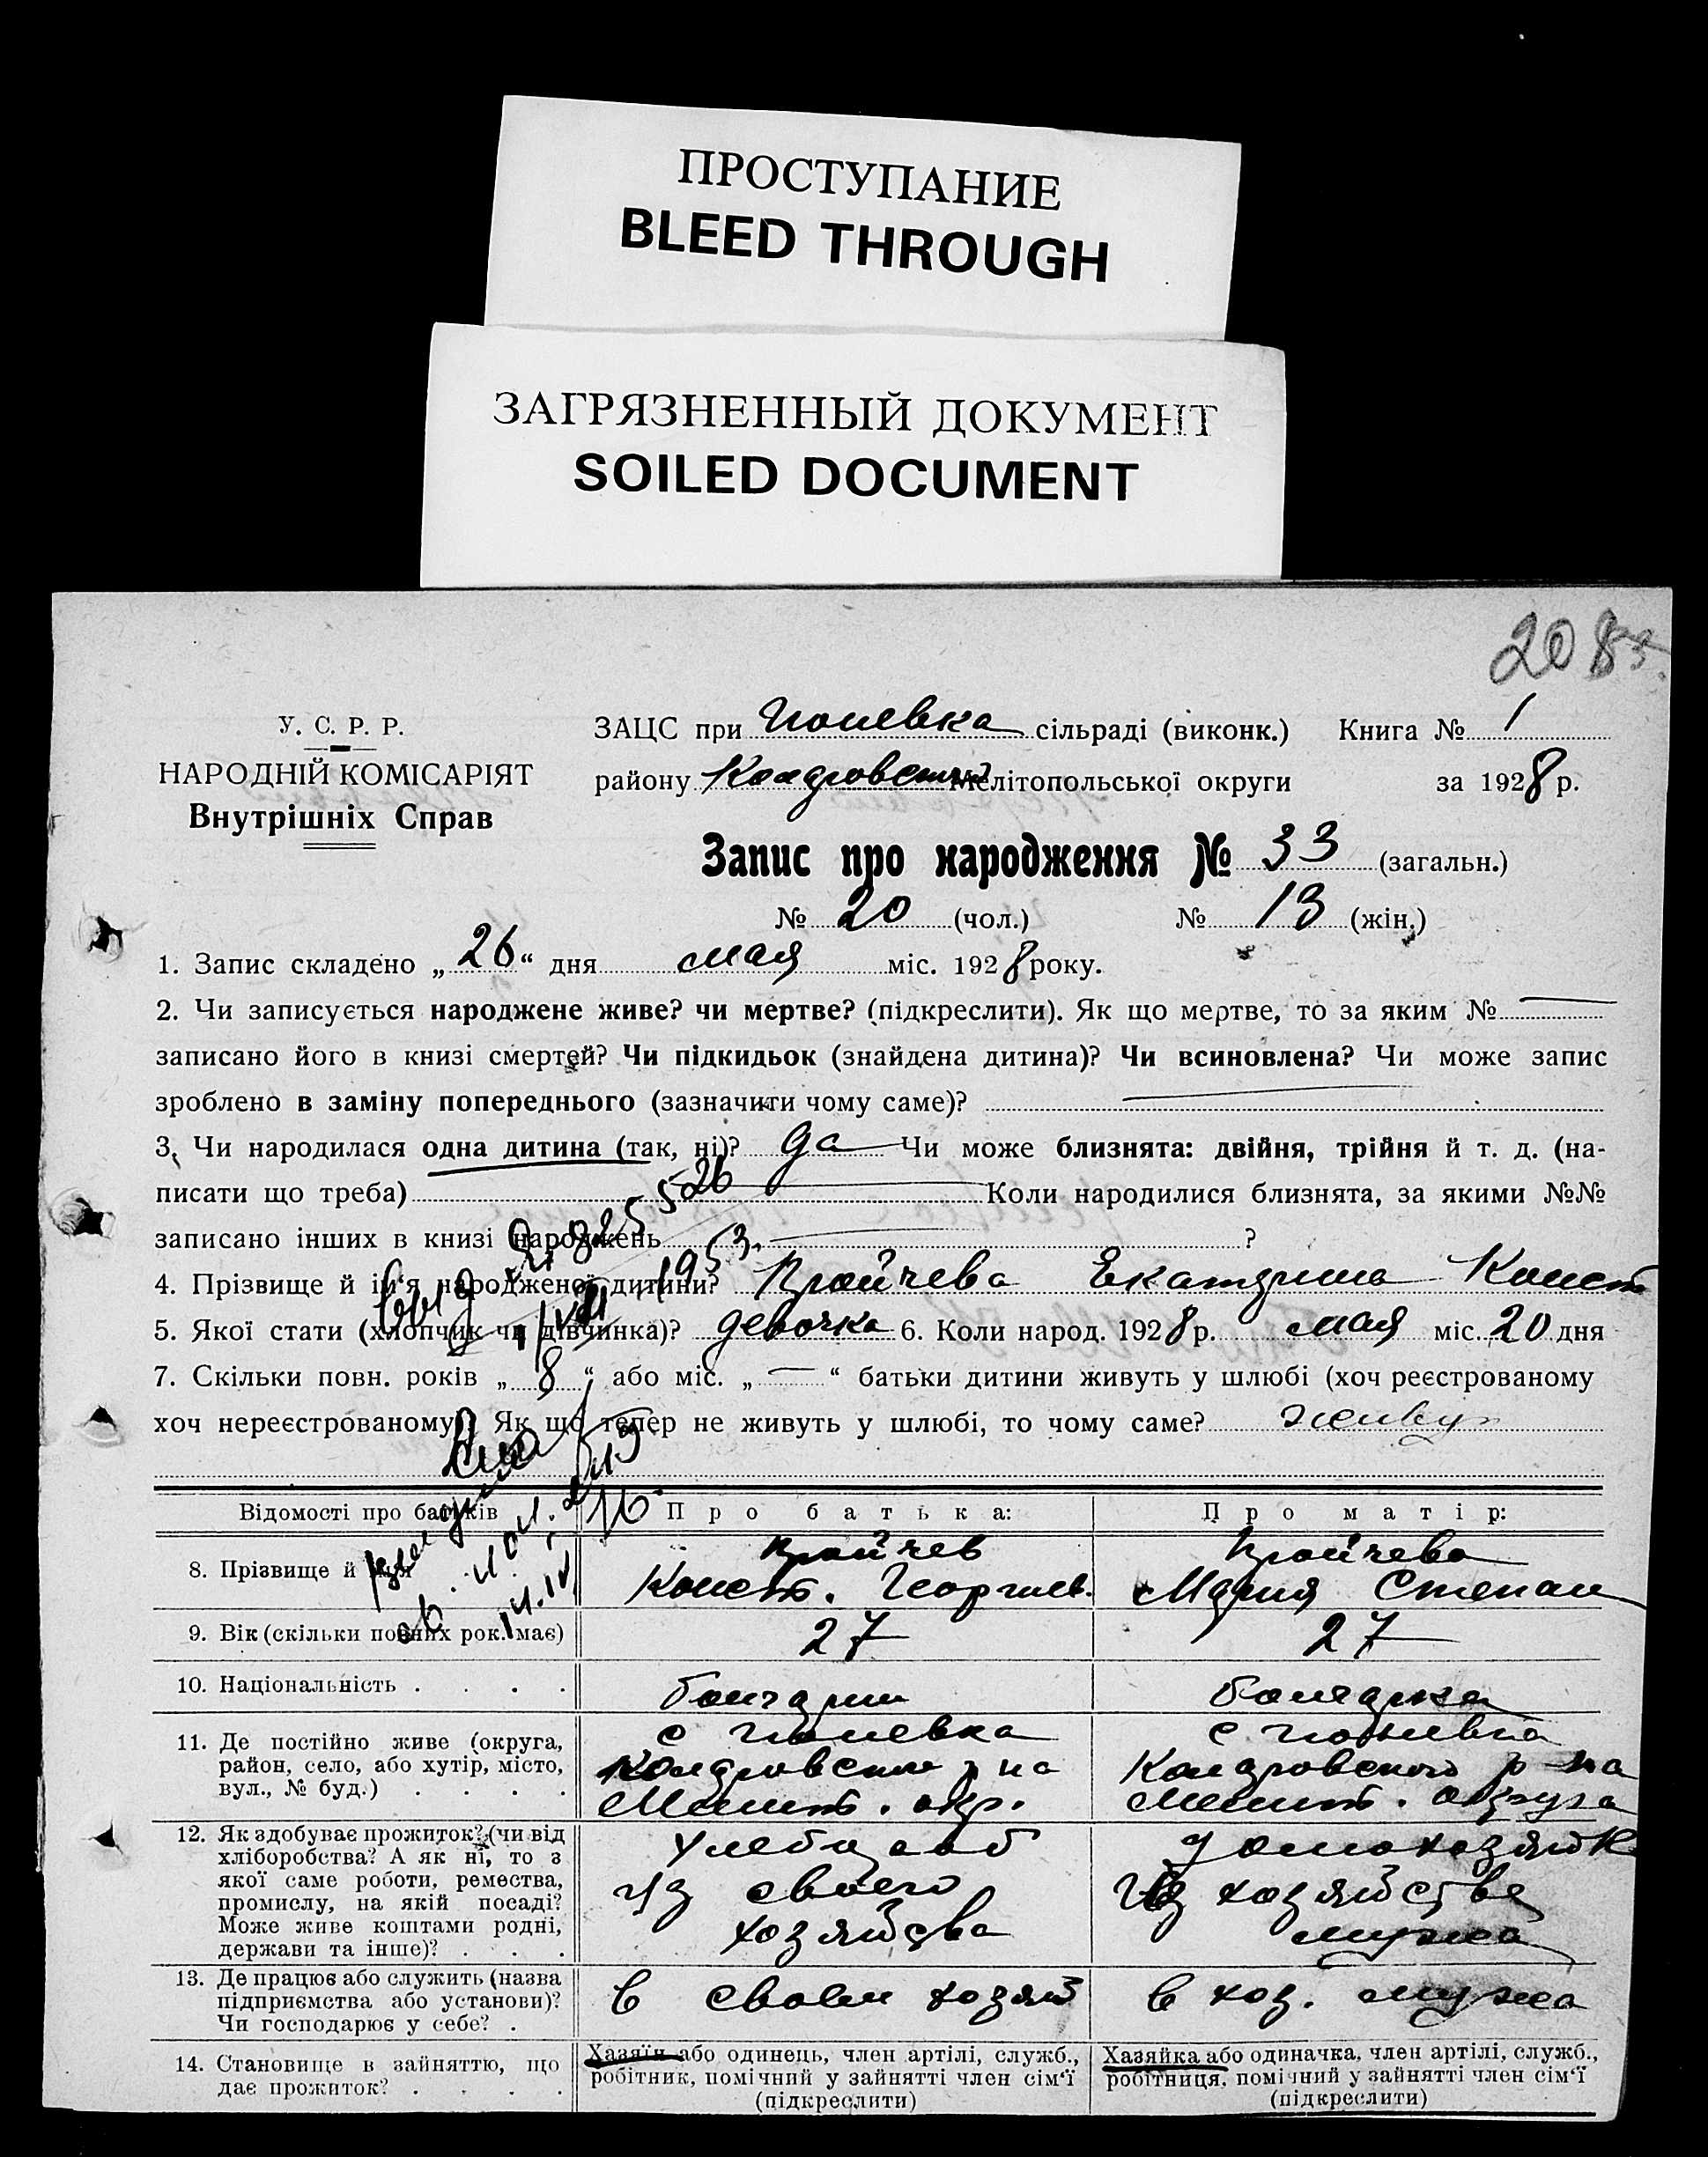 ПРОСТУПАНИЕ
BLEED THROUGH
ЗАГРЯЗНЕННЫЙ ДОКУМЕНТ
SOILED DOCUMENT
208
У. С. Р. Р.
НАРОДНІЙ КОМІСАРІЯТ
Внутрішніх Справ
ЗАЦС при сільраді (виконк.) Книга № 1
району Мелітопольської округи за 1928 р.
Запис про народження № 33 (загальн.)
№ 20 (чол.) № 13 (жін.)
1. Запис складено „ 26 “ дня мая міс. 1928 року.
2. Чи записується народжене живе? чи мертве? (підкреслити). Як що мертве, то за яким № —
записано його в книзі смертей? Чи підкидьок (знайдена дитина)? Чи всиновлена? Чи може запис
зроблено в заміну попереднього (зазначити чому саме)? —
3. Чи народилася одна дитина (так, ні)? да Чи може близнята: двійня, трійня й т. д. (на-
писати що треба) — Коли народилися близнята, за якими №№
записано інших в книзі народжень — ?
4. Прізвище й ім'я народженої дитини? Крайчева Екатерина Конст
5. Якої стати (хлопчик чи дівчинка)? девочка 6. Коли народ. 1928 р. мая міс. 20 дня
7. Скільки повн. років „ 8 “ або міс. „ — “ батьки дитини живуть у шлюбі (хоч реєстрованому
хоч нереєстрованому)? Як що тепер не живуть у шлюбі, то чому саме? живут
Відомості про батьків
Про батька:
Про матір:
8. Прізвище й ім'я
Крайчев
Конст. Георгиев.
Крайчева
Мария Степан
9. Вік (скільки повних рок. має)
27
27
10. Національність . . . .
болгарин
болгарка
11. Де постійно живе (округа,
район, село, або хутір, місто,
вул., № буд.) . . . .
с
на
Мелит. окр.
с
р-на
Мелит. округа
12. Як здобуває прожиток? (чи від
хліборобства? А як ні, то з
якої саме роботи, ремества,
промислу, на якій посаді?
Може живе коштами родні,
держави та інше)? . . .
Хлебороб
из своего
хозяйства
домохозяйк
из хозяйства
мужа
13. Де працює або служить (назва
підприємства або установи)?
Чи господарює у себе? .
в своем хозяй
в хоз. мужа
14. Становище в зайняттю, що
дає прожиток? . . . .
Хазяїн або одинець, член артілі, служб.,
робітник, помічний у зайнятті член сім'ї
(підкреслити)
Хазяйка або одиначка, член артілі, служб.,
робітниця, помічний у зайнятті член сім'ї
(підкреслити)